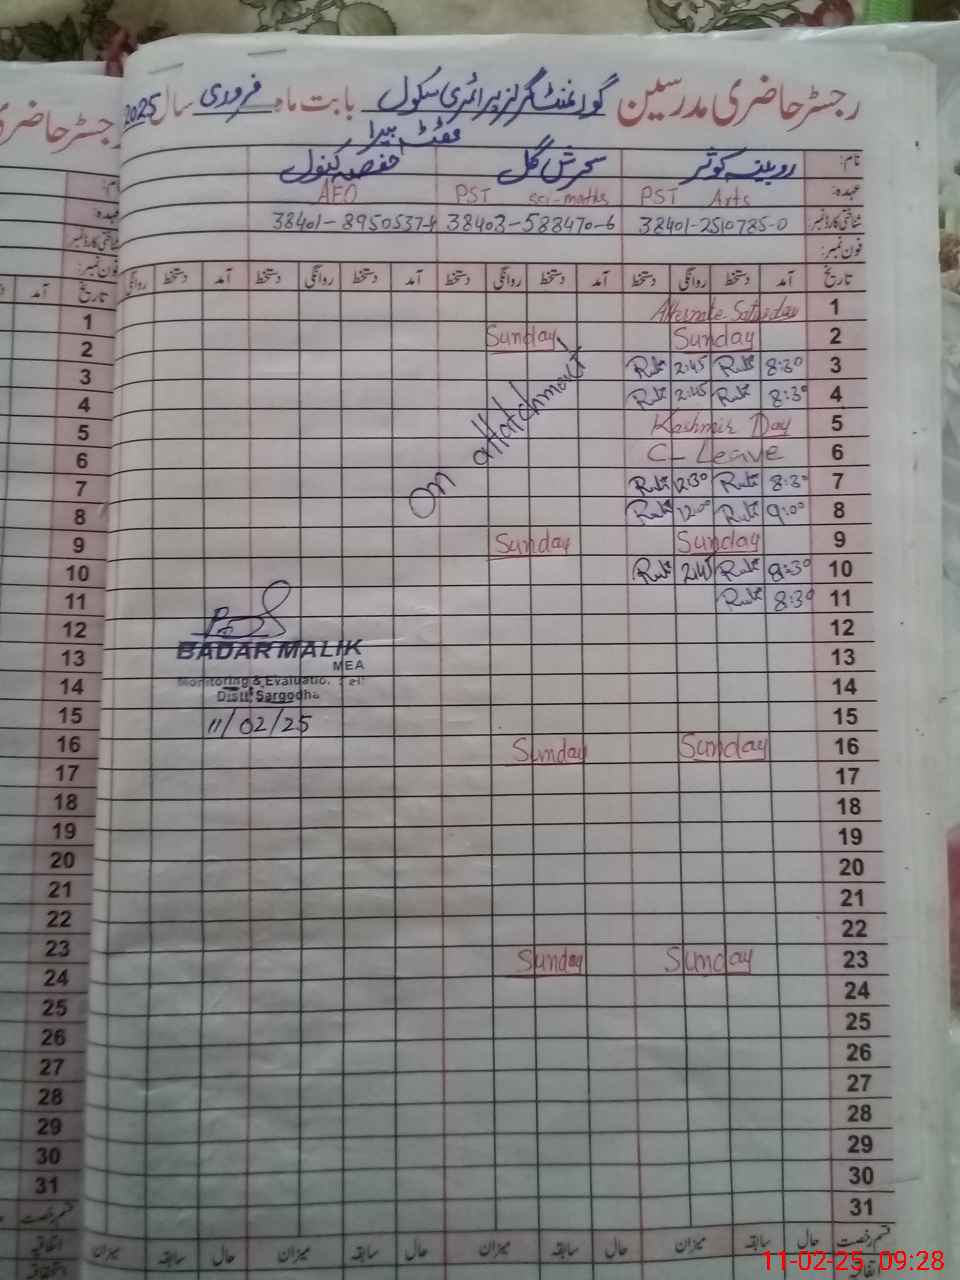 رجسٹر حاضری مدرسین گورنمنٹ گرلز پرائمری سکول بابت ماہ فروری سال 2025
نام: روبینہ کوثر سحرش گل حفصہ کنول
عہدہ: PST Arts PST Sci-maths AEO
شناختی کارڈ نمبر: 38401-2510785-0 38403-588470-6 38401-8950537-4
فون نمبر:
تاریخ آمد دستخط روانگی دستخط آمد دستخط روانگی دستخط آمد دستخط روانگی دستخط آمد دستخط روانگی
1 Alternate Saturday
2 Sunday Sunday
3 8:30 2:45
4 8:30 2:45
5 Kashmir Day
6 C-Leave
7 8:30 12:30
8 9:00 12:00
9 Sunday Sunday
10 8:30 2:45
11 8:30
On attatchment
12
13
14
15
16 Sunday Sunday
17
18
19
20
21
22
23 Sunday Sunday
24
25
26
27
28
29
30
31
قسم رخصت حال سابقہ میزان حال سابقہ میزان حال سابقہ میزان حال سابقہ میزان
BADAR MALIK
MEA
Monitoring & Evaluatio
Distt: Sargodha
11/02/25
رجسٹر حاضری
نام:
عہدہ:
شناختی کارڈ نمبر
فون نمبر:
تاریخ آمد
1
2
3
4
5
6
7
8
9
10
11
12
13
14
15
16
17
18
19
20
21
22
23
24
25
26
27
28
29
30
31
قسم رخصت
اتفاقیہ
11-02-25 09:28